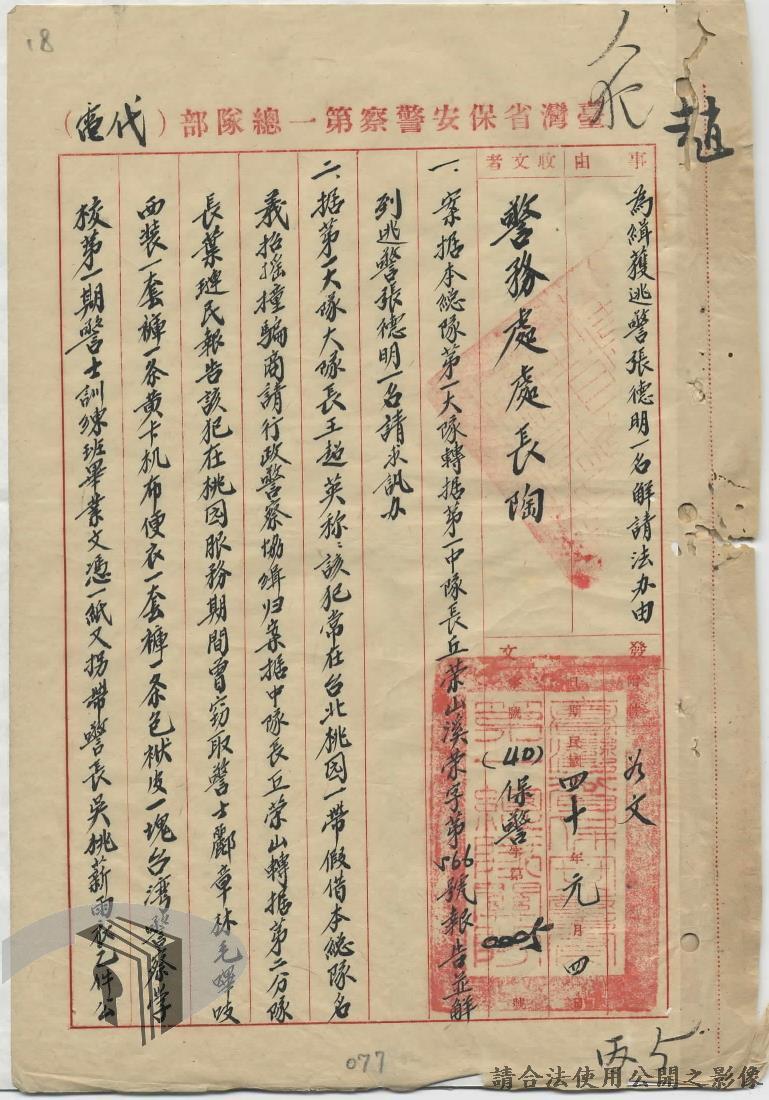 18
臺灣省保安警察第一總隊部（代電）
趙
事由
為緝獲逃警張德明一名解請法办由
收文者
警務處處長陶
發文
附件
如文
日期 民國四十年元月四日
字號 (40)保警字第0005號
一、案据本總隊第一大隊轉据第一中隊長丘荣山溪荣字第566號報告並解
列逃警張德明一名請求訊办
二、据第一大隊大隊長王超英称：該犯常在台北桃园一帶假借本總隊名
義招摇撞騙商請行政警察协緝归案据中隊長丘荣山轉据第二分隊
長葉璉民報告該犯在桃园服務期間曾窃取警士酈章林毛嗶吱
西装一套褲一条黄卡机布便衣一套褲一条包袱皮一塊台湾警察学
校第一期警士訓練班畢業文憑一紙又拐帶警長吳桃薪雨衣乙件公
077
丙5
請合法使用公開之影像